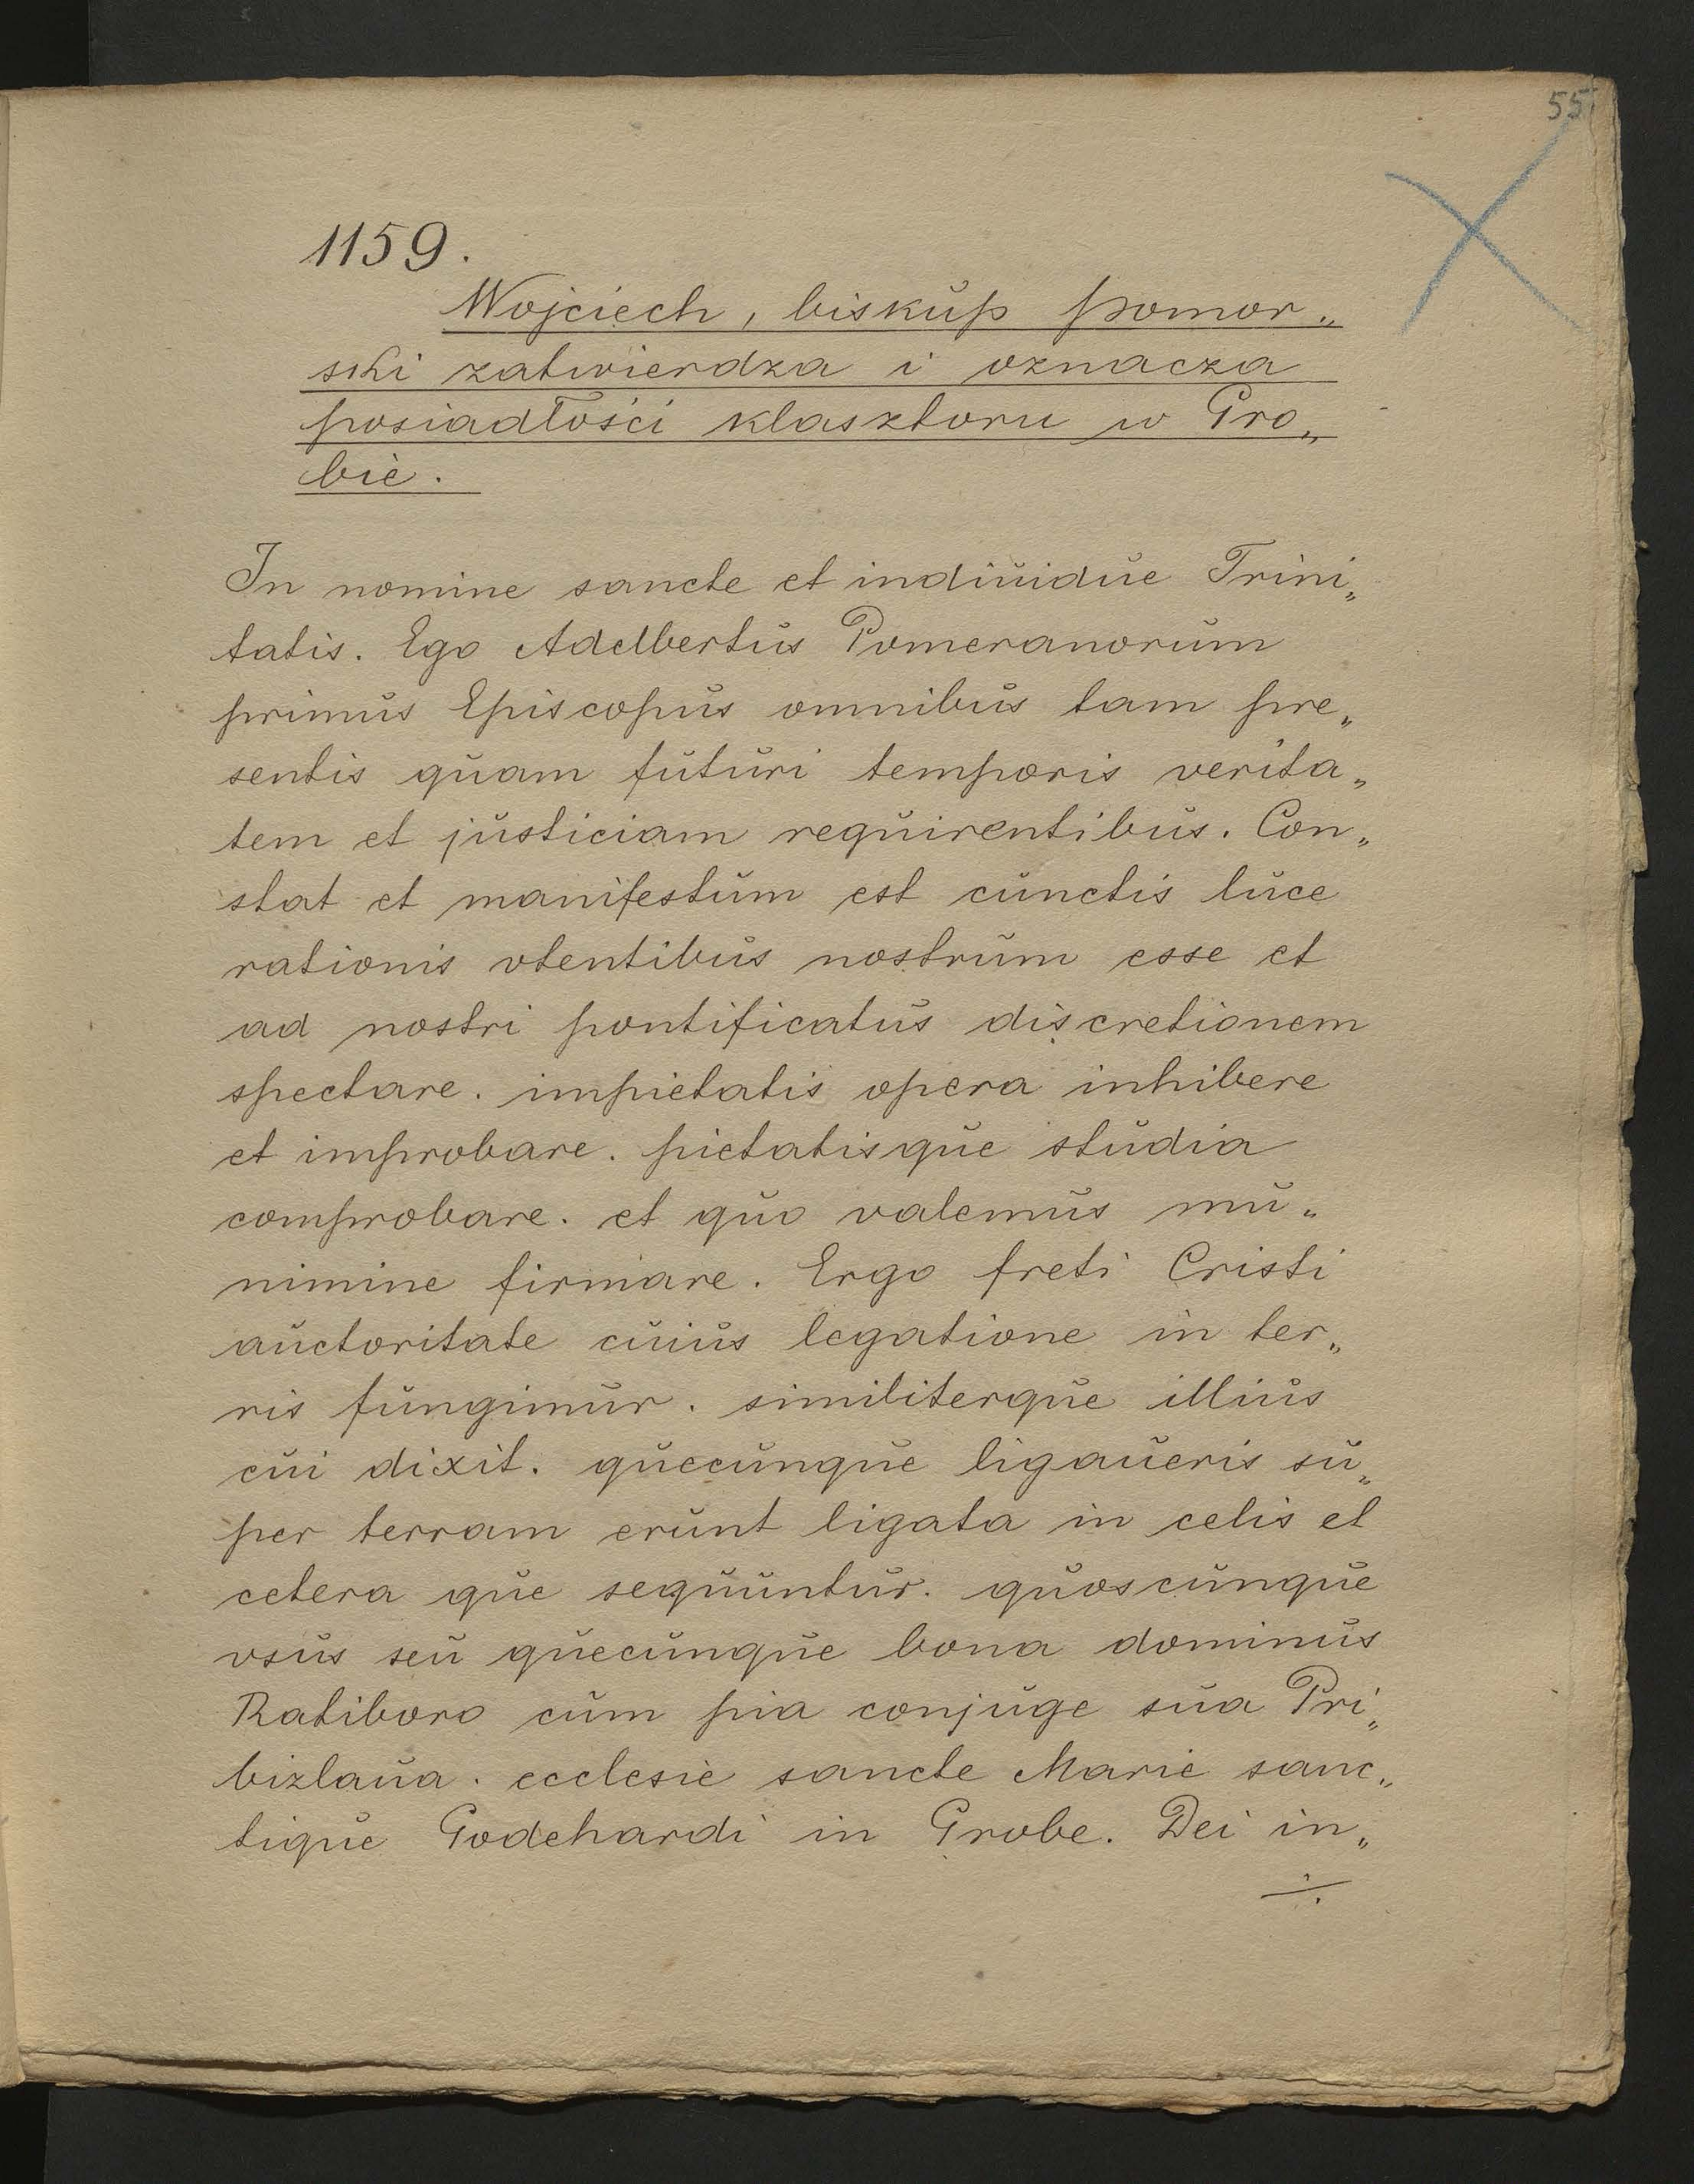 55
1159.
Wojciech, biskup pomor„
ski zatwierdza i oznacza
posiadłości klasztoru w Gro„
bie.
In nomine sancte et indiuidue Trini„
tatis. Ego Adelbertus Pomeranorum
primus Episcopus omnibus tam pre„
sentis quam futuri temporis verita„
tem et justiciam requirentibus. Con„
stat et manifestum est cunctis luce
rationis vtentibus nostrum esse et
ad nostri pontificatus discretionem
spectare. impietatis opera inhibere
et improbare. pietatisque studia
comprobare. et quo valemus mu„
nimine firmare. Ergo freti Cristi
auctoritate cuius legatione in ter„
ris fungimur. similiterque illius
cui dixit. quecunque ligaueris su„
per terram erunt ligata in celis et
cetera que sequuntur. quoscunque
vsus seu quecunque bona dominus
Ratiboro cum pia conjuge sua Pri„
bizlaua. ecclesie sancte Marie sanc„
tique Godehardi in Grobe. Dei in„
÷